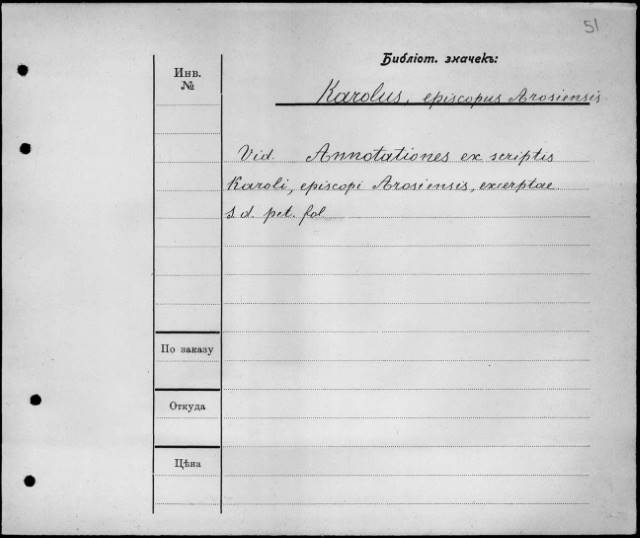 51
Библіот. значекъ:
Инв.
№
Karolus, episcopus Arosiensis
Vid. Annotationes ex scriptis
Karoli, episcopi Arosiensis, excerptae
s. d. pet. fol
По заказу
Откуда
Цѣна